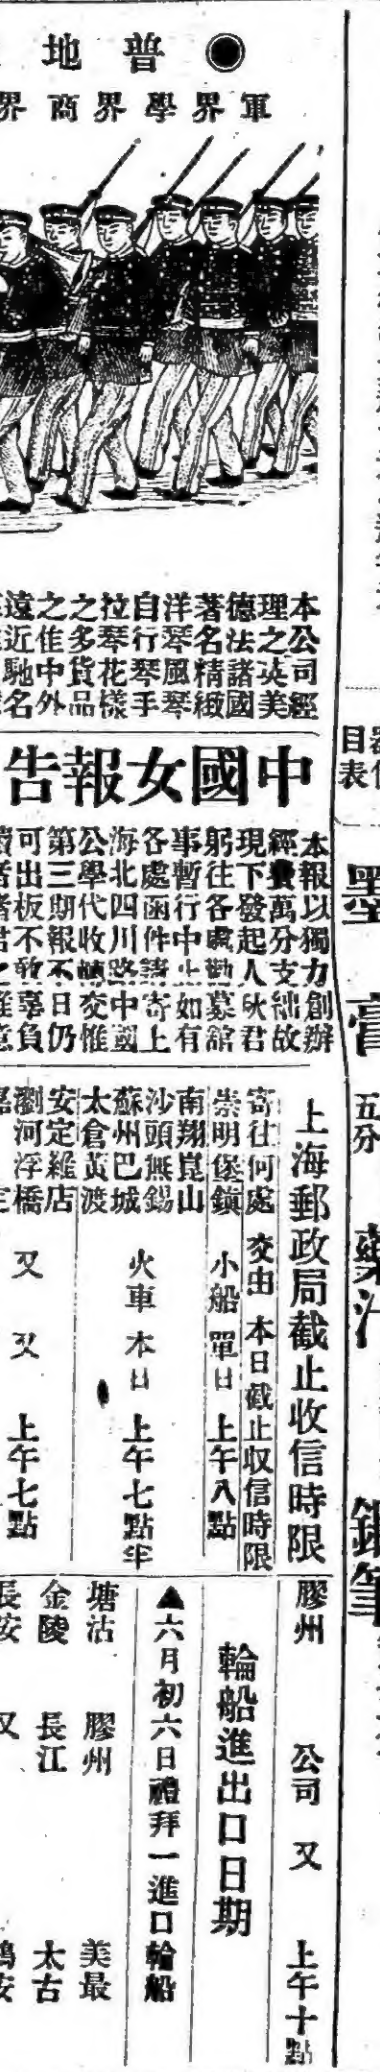 普地
軍界學界商界
本公司經
理之英美
德法諸國
著名精緻
洋琴風琴
自行琴手
拉琴花樣
之多貨品
之佳中外
遠近馳名
中國女報告
本報以獨力創辦
經費萬分支絀故
現下發起人秋君
躬往各處勸募館
事暫行中止如有
各處函件請寄上
海北四川路中國
公學代收轉交惟
第三期報不日仍
可出板不敢辜負
上海郵政局截止收信時限
寄往何處 交由 本日截止收信時限
崇明堡鎮 小船 單日 上午八點
南翔崑山
沙頭無錫
蘇州巴城 火車 本日 上午七點半
太倉黃渡
安定維店
瀏河浮橋 又 又 上午七點
膠州 公司 又 上午十點
輪船進出口日期
▲六月初六日禮拜一進口輪船
塘沽 膠州 美最
金陵 長江 太古
長安 又 鴻安
目表
墨
膏
五分
藥
筆